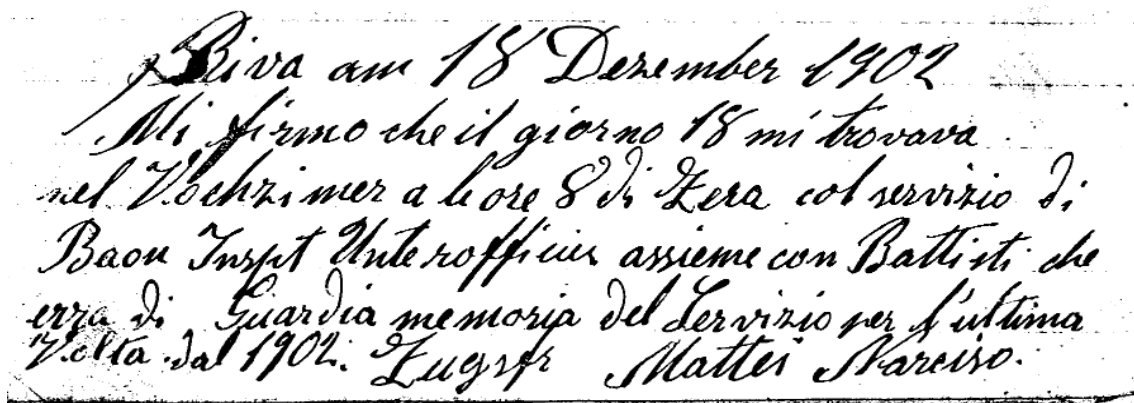 Riva am 18 Dezember 1902
Mi firmo che il giorno 18 mi trovava
nel Vochzimer a le ore 8 di Zera col servizio di
Baon Inspt Unterofficier assieme con Battisti che
erra di Guardia memoria del Servizio per l'ultima
Volta dal 1902. Zugsfr Mattei Narciso.